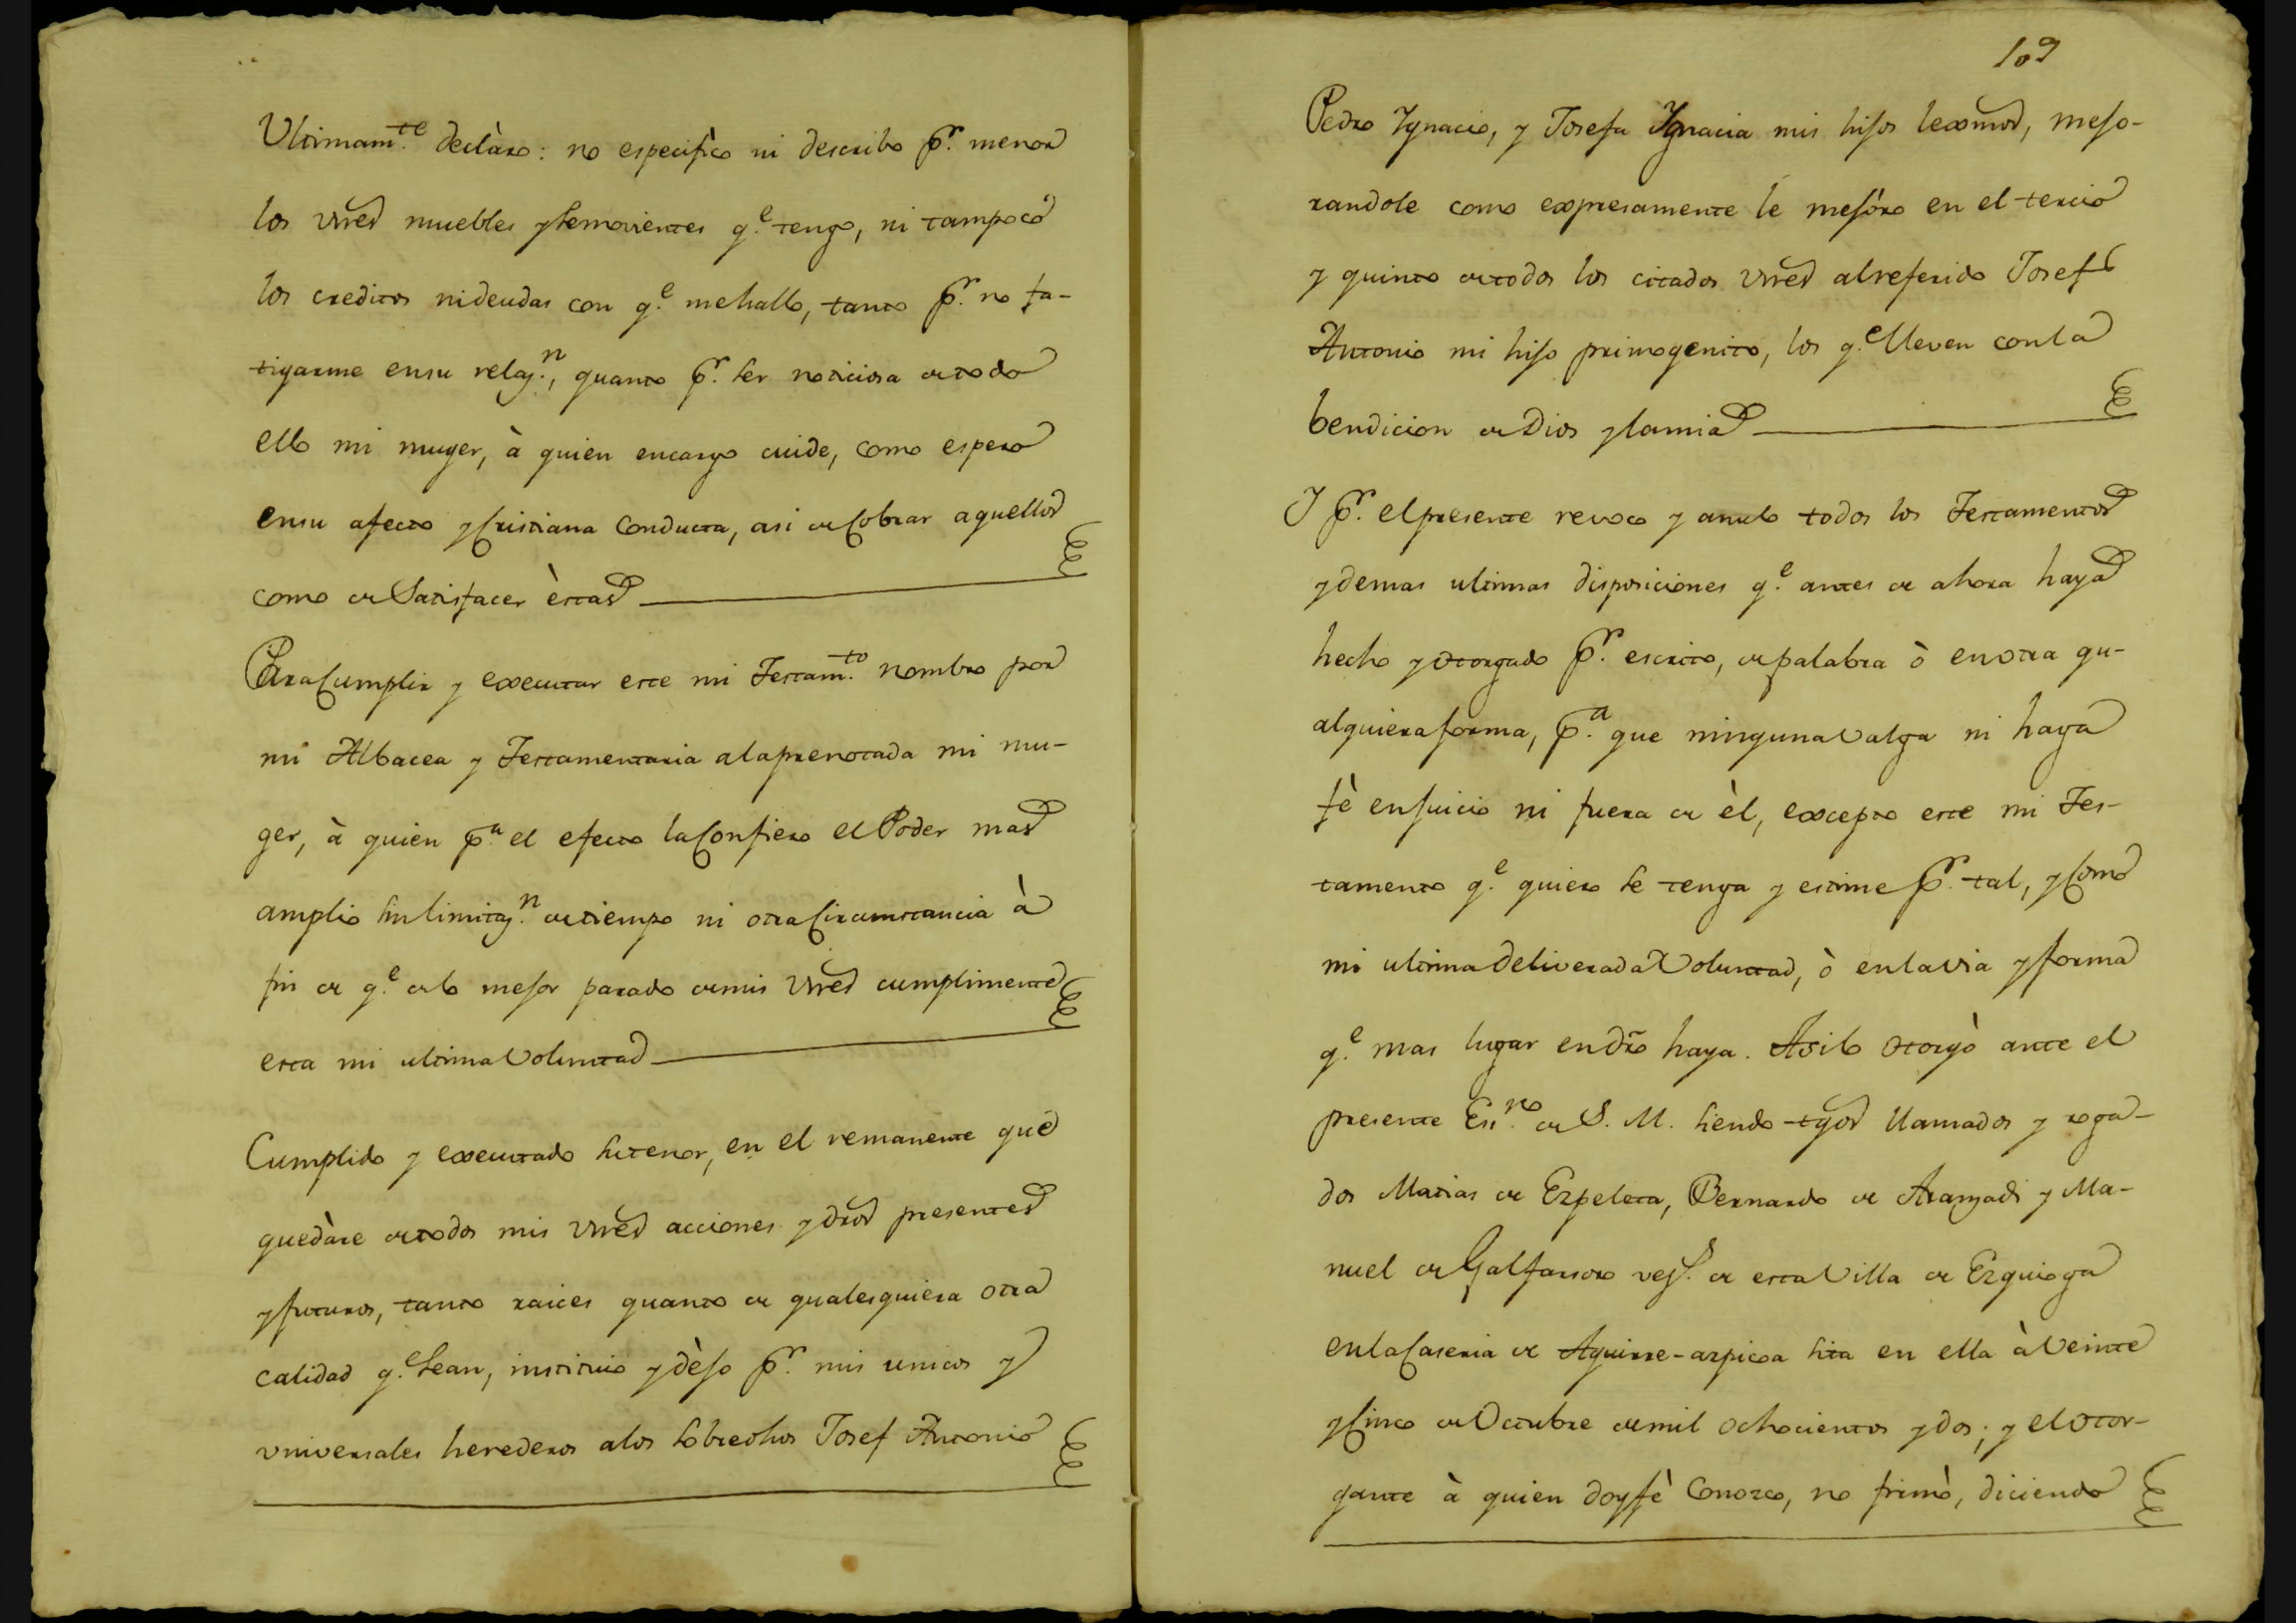 Ultimam.te declàro: no especifico ni describo p.r menor
los vnes muebles y semovientes q.e tengo, ni tampoco
los creditos ni deudas con q.e me hallo, tanto p.r no fa-
tigarme en su relaz.n, quanto p.r ser noticiosa de todo
ello mi muger, à quien encargo cuide, como espero
en su afecto y Cristiana Conducta, asi de Cobrar aquellos
como de Satisfacer èstas
Para Cumplir y executar este mi Testam.to nombro por
mi Albacea y Testamentaria a la prenotada mi mu-
ger, à quien p.a el efecto la Confiero el Poder mas
amplio sin limitaz.n de tiempo ni otra Circunstancia à
fin de q.e de lo mejor parado de mis Vnes cumplimente
esta mi ultima Voluntad
Cumplido y executado su tenor, en el remanente que
quedàre de todos mis Vnes acciones y dros presentes
y futuros, tanto raices quanto de qualesquiera otra
calidad q.e Sean, instituio y dèjo p.r mis unicos y
vniversales herederos a los sobredhos Josef Antonio
109
Pedro Ygnacio, y Josefa Ygnacia mis hijos lexmos, mejo-
randole como expresamente le mejòro en el tercio
y quinto de todos los citados Vnes al referido Josef
Antonio mi hijo primogenito, los q.e lleven con la
bendicion de Dios y la mia
Y p.r el presente revoco y anulo todos los Testamentos
y demas ultimas disposiciones q.e antes de ahora haya
hecho y otorgado p.r escrito, de palabra ò en otra qu-
alquiera forma, p.a que ninguna Valga ni haga
fè en juicio ni fuera de èl, excepto este mi Tes-
tamento q.e quiero se tenga y estime p.r tal, y Como
mi ultima deliverada Voluntad, ò en la via y forma
q.e mas lugar en dro haya. Asi lo otorgò ante el
presente Es.no de S. M. siendo tgos llamados y roga-
dos Matias de Ezpeleta, Bernardo de Aranzadi y Ma-
nuel de Galfarsoro vez.s de esta Villa de Ezquioga
en la Caseria de Aguirre-azpicoa sita en ella à Veinte
y Cinco de Octubre de mil ochocientos y dos; y el otor-
gante à quien doy fè Conozco, no firmò, diciendo